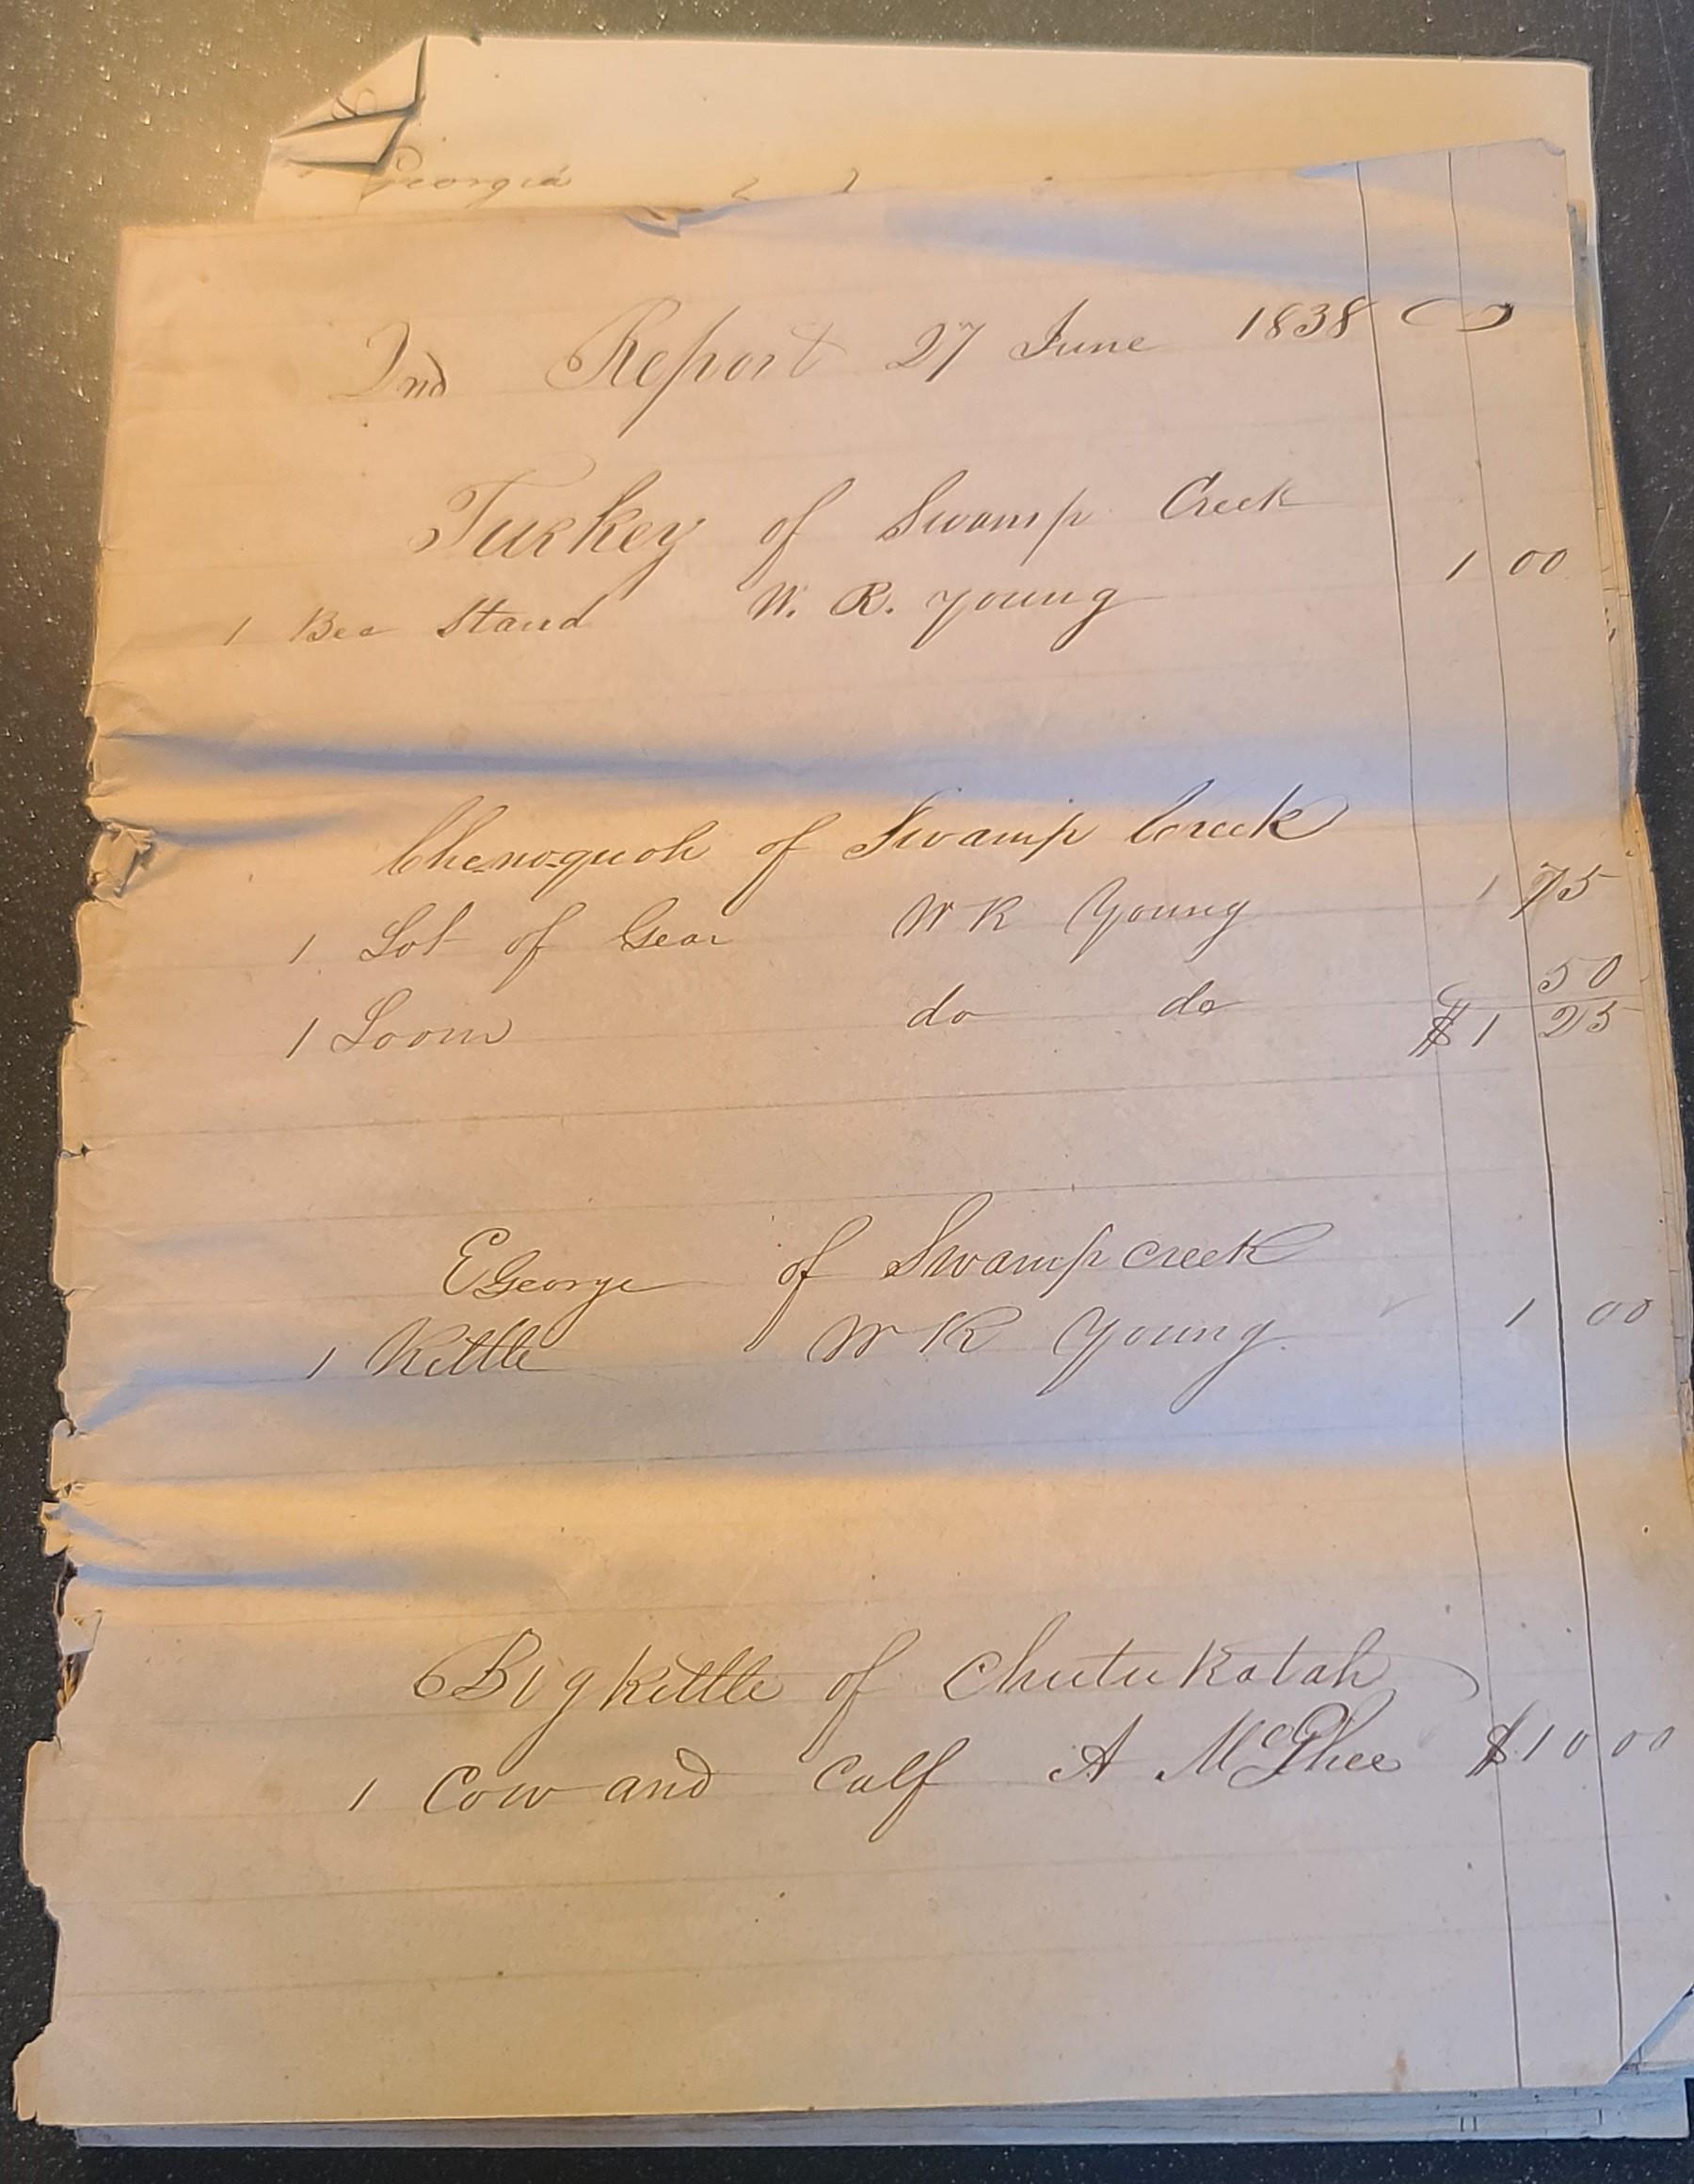 Georgia
2nd Report 27 June 1838
Turkey of Swamp Creek
1 Bee Stand W. R. Young 1 00
Che-no-quoh of Swamp Creek
1 Lot of Gear W R Young 1 75
1 Loom do do 50
$1 25
E George of Swamp creek
1 Kettle W R Young 1 00
Big Kettle of Chutukatah
1 Cow and Calf A McGhee $10 00